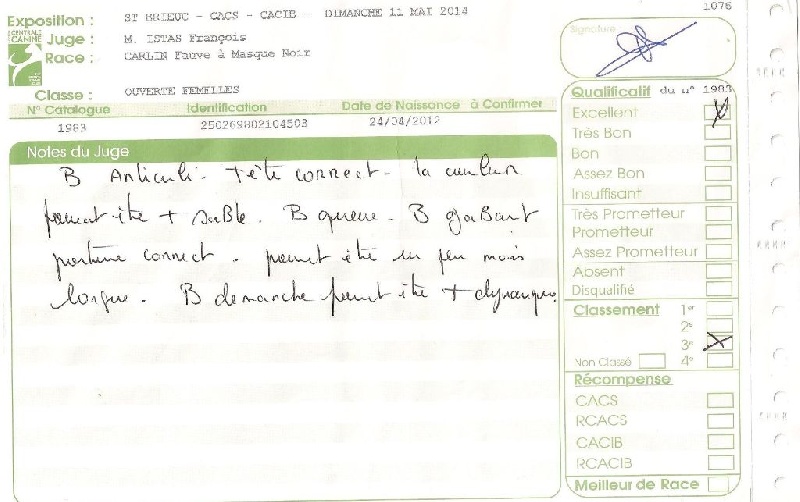 1076
Exposition : ST BRIEUC - CACS - CACIB - DIMANCHE 11 MAI 2014
CENTRALE CANINE
Juge : M. ISTAS François
Race : CARLIN Fauve à Masque Noir
Classe : OUVERTE FEMELLES
N° Catalogue Identification Date de Naissance à Confirmer
1983 250269802104503 24/04/2012
Notes du Juge
B Tête correct - la couleur
pourrait être + sable. B queue - B gabarit
poitrine correct - pourrait être un peu moins
B demarche pourrait être +
Signature
Qualificatif du n° 1983
Excellent X
Très Bon
Bon
Assez Bon
Insuffisant
Très Prometteur
Prometteur
Assez Prometteur
Absent
Disqualifié
Classement 1er
2e
3e X
Non Classé 4e
Récompense
CACS
RCACS
CACIB
RCACIB
Meilleur de Race